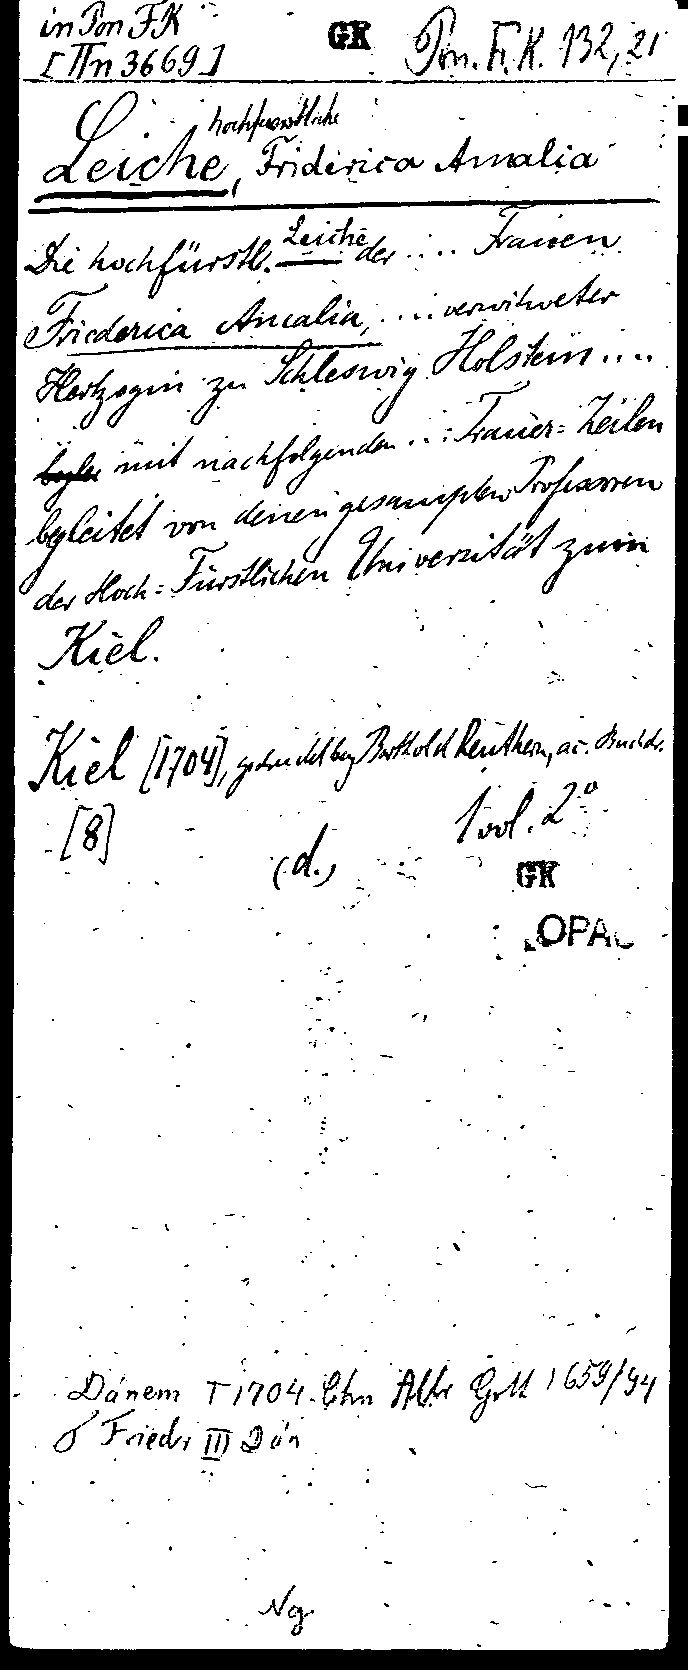 in Pon FK
GK
Pon. F. K. 132, 21
[IIn 3669]
hochfürstliche
Leiche, Friderica Amalia
Die hochfürstl. Leiche der .... Frauen
Friederica Amalia, .... verwitweter
Hertzogin zu Schleswig Holstein ....
mit nachfolgenden ... Trauer=Zeilen
begleitet von denen gesampten Professoren
der Hoch=Fürstlichen Universität zum
Kiel.
Kiel [1704], gedruckt bey Barthold Reuthern, ac. Buchdr.
[8] (d.) 1 vol. 2°
GK
OPAC
Dänem † 1704. Chn Albr Gott 1659/94
Friedr III Dän
Ng